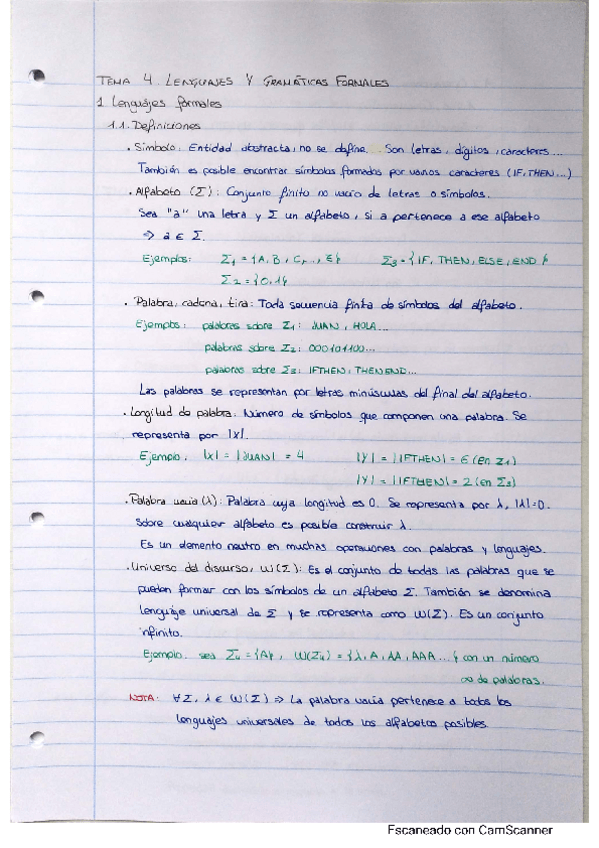 TEMA 4. LENGUAJES Y GRAMÁTICAS FORMALES
1. Lenguajes formales
1.1. Definiciones
. Símbolo: Entidad abstracta, no se define. Son letras, dígitos, caracteres...
También es posible encontrar símbolos formados por varios caracteres (IF, THEN...)
. Alfabeto (Σ): Conjunto finito no vacío de letras o símbolos.
Sea "a" una letra y Σ un alfabeto, si a pertenece a ese alfabeto
⇒ a ∈ Σ.
Ejemplos: Σ1 = {A, B, C, ..., Z} Σ3 = {IF, THEN, ELSE, END}
Σ2 = {0,1}
. Palabra, cadena, tira: Toda secuencia finita de símbolos del alfabeto.
Ejemplos: palabras sobre Σ1: JUAN, HOLA...
palabras sobre Σ2: 000101100...
palabras sobre Σ3: IFTHEN, THENEND...
Las palabras se representan por letras minúsculas del final del alfabeto.
. Longitud de palabra: Número de símbolos que componen una palabra. Se
representa por |x|.
Ejemplo: |x| = |JUAN| = 4 |y| = |IFTHEN| = 6 (en Σ1)
|y| = |IFTHEN| = 2 (en Σ3)
. Palabra vacía (λ): Palabra cuya longitud es 0. Se representa por λ, |λ|=0.
Sobre cualquier alfabeto es posible construir λ.
Es un elemento neutro en muchas operaciones con palabras y lenguajes.
. Universo del discurso, W(Σ): Es el conjunto de todas las palabras que se
pueden formar con los símbolos de un alfabeto Σ. También se denomina
lenguaje universal de Σ y se representa como W(Σ). Es un conjunto
infinito.
Ejemplo: sea Σ4 = {A}, W(Σ4) = {λ, A, AA, AAA...} con un número
∞ de palabras.
NOTA: ∀Σ, λ ∈ W(Σ) ⇒ La palabra vacía pertenece a todos los
lenguajes universales de todos los alfabetos posibles.
Escaneado con CamScanner